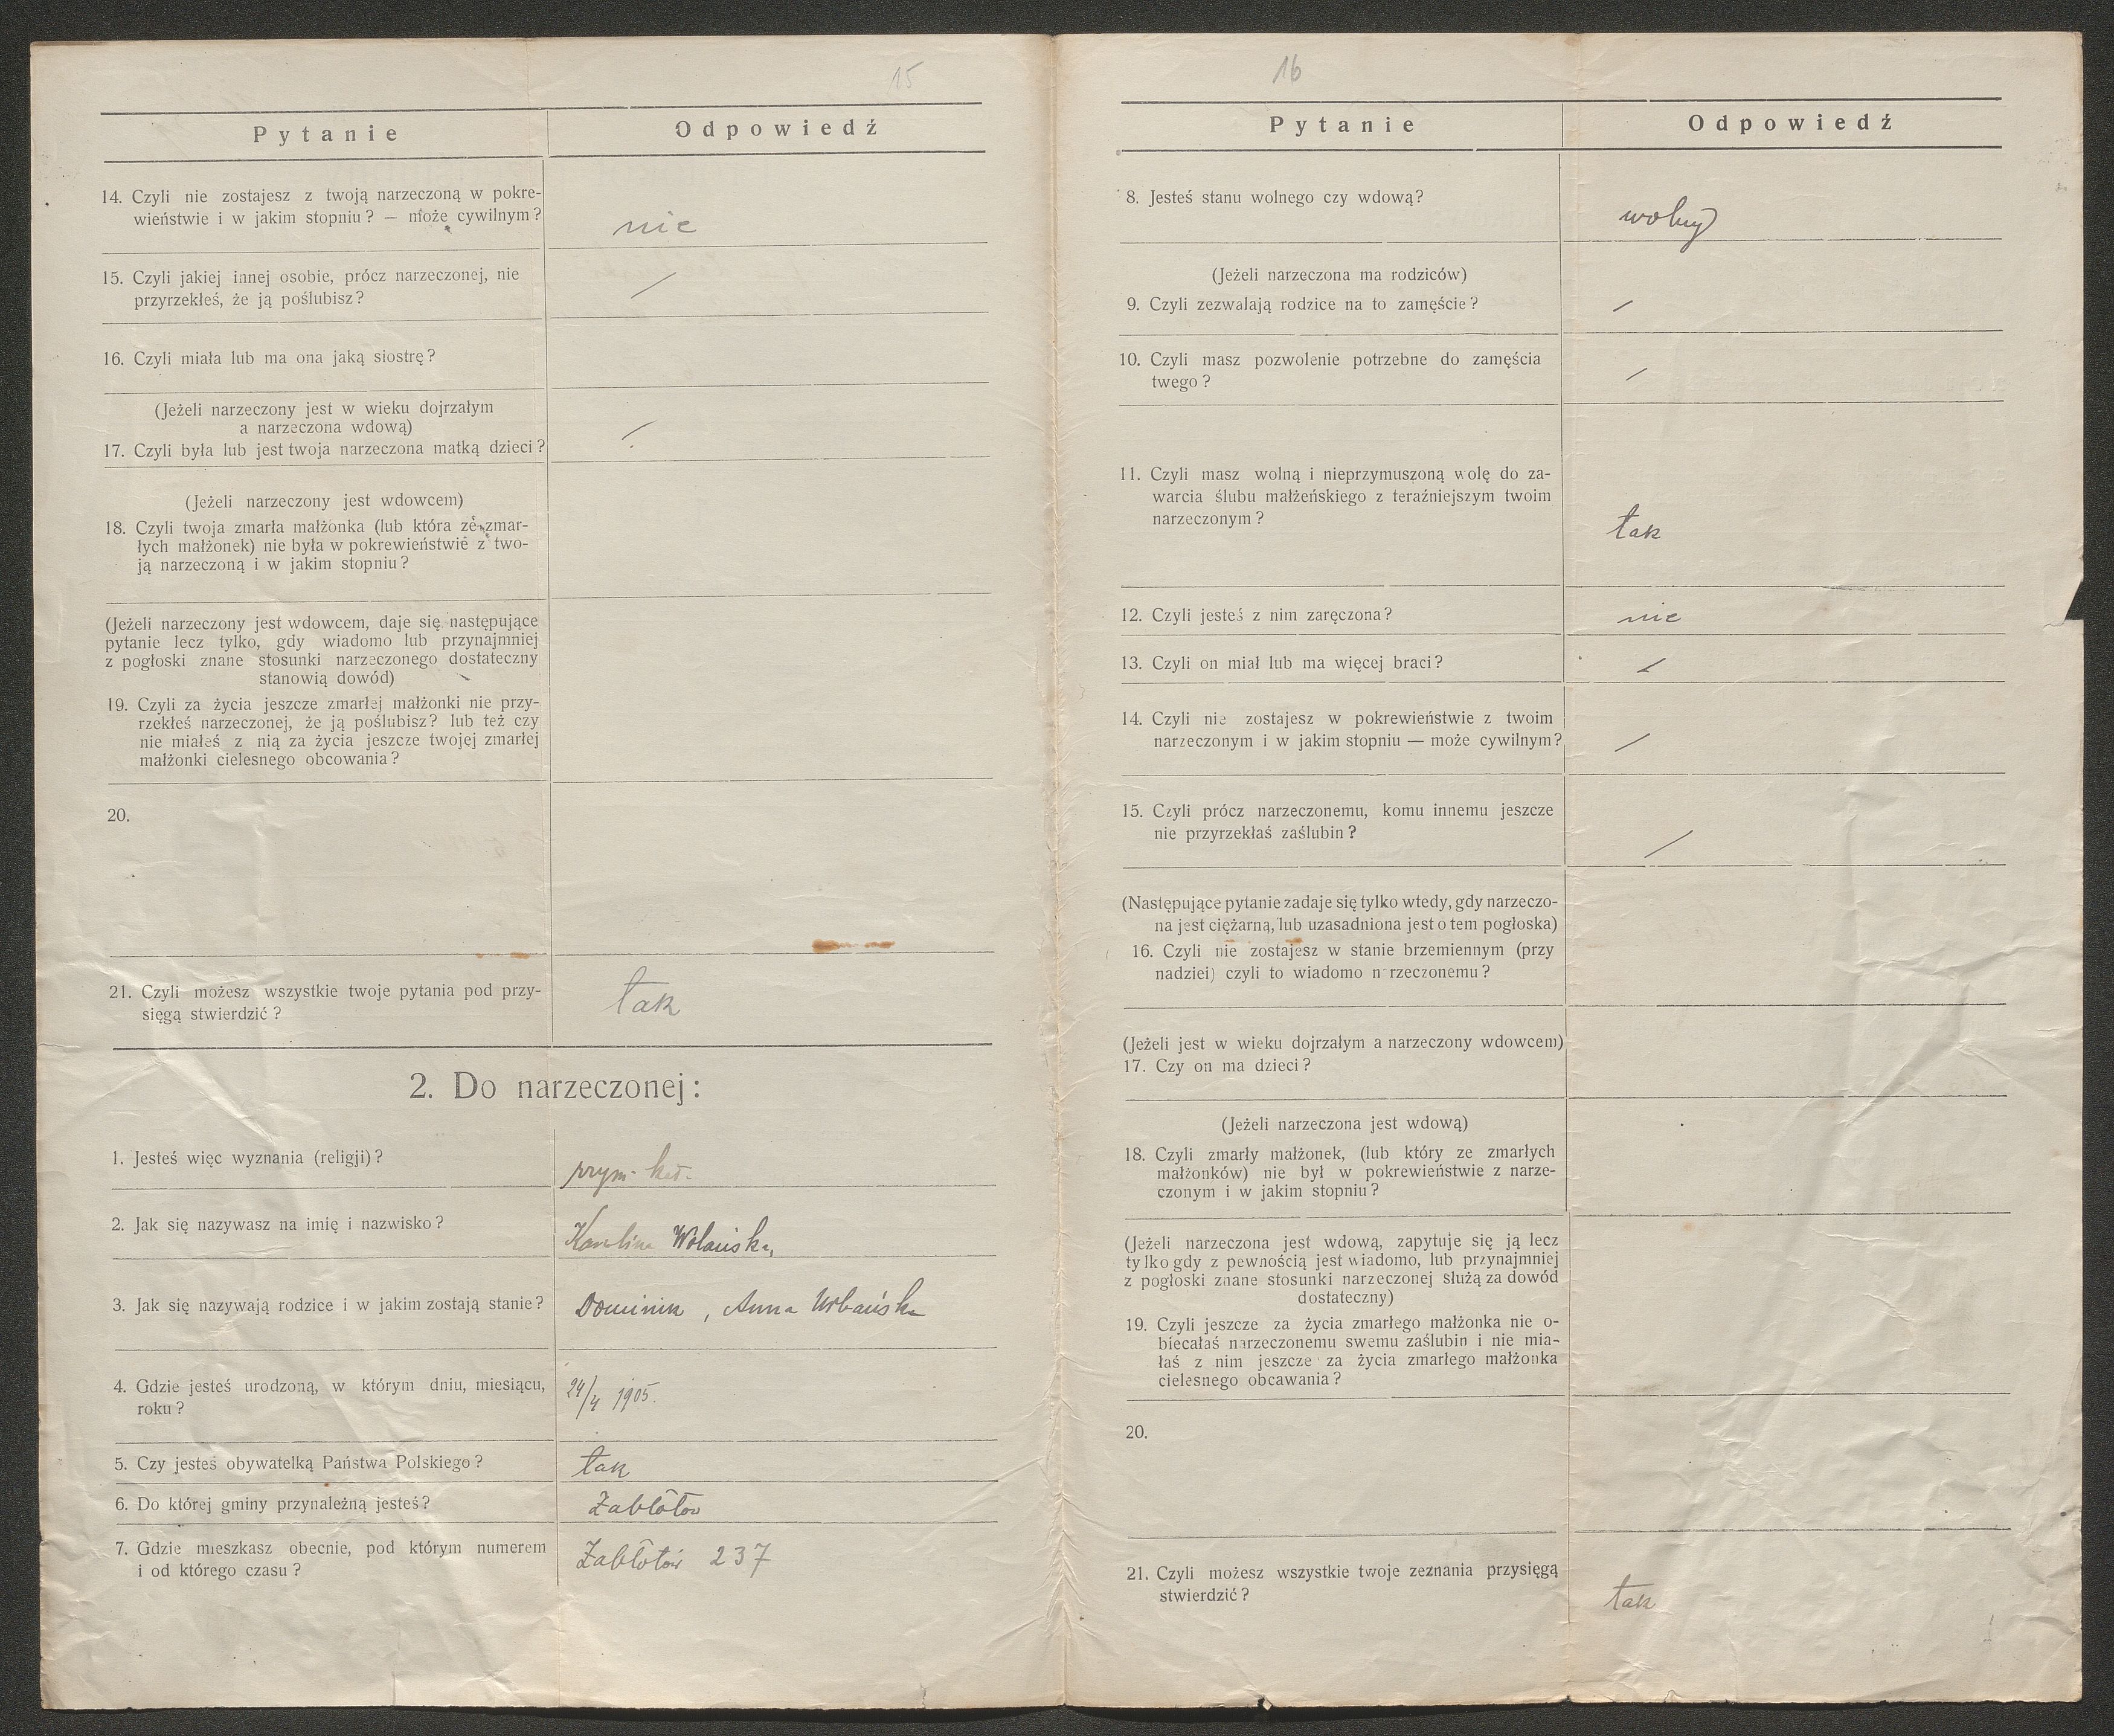 15
Pytanie Odpowiedź
14. Czyli nie zostajesz z twoją narzeczoną w pokre-
wieństwie i w jakim stopniu? — może cywilnym?
nie
15. Czyli jakiej innej osobie, prócz narzeczonej, nie
przyrzekłeś, że ją poślubisz?
/
16. Czyli miała lub ma ona jaką siostrę?
(Jeżeli narzeczony jest w wieku dojrzałym
a narzeczona wdową)
17. Czyli była lub jest twoja narzeczona matką dzieci?
/
(Jeżeli narzeczony jest wdowcem)
18. Czyli twoja zmarła małżonka (lub która ze zmar-
łych małżonek) nie była w pokrewieństwie z two-
ją narzeczoną i w jakim stopniu?
(Jeżeli narzeczony jest wdowcem, daje się następujące
pytanie lecz tylko, gdy wiadomo lub przynajmniej
z pogłoski znane stosunki narzeczonego dostateczny
stanowią dowód)
19. Czyli za życia jeszcze zmarłej małżonki nie przy-
rzekłeś narzeczonej, że ją poślubisz? lub też czy
nie miałeś z nią za życia jeszcze twojej zmarłej
małżonki cielesnego obcowania?
20.
21. Czyli możesz wszystkie twoje pytania pod przy-
sięgą stwierdzić?
tak
2. Do narzeczonej:
1. Jesteś więc wyznania (religji)?
rzym-kat.
2. Jak się nazywasz na imię i nazwisko?
Karolina Wolańska
3. Jak się nazywają rodzice i w jakim zostają stanie?
Dominik, Anna Urbańska
4. Gdzie jesteś urodzoną, w którym dniu, miesiącu,
roku?
24/4 1905.
5. Czy jesteś obywatelką Państwa Polskiego?
tak
6. Do której gminy przynależną jesteś?
Zabłotów
7. Gdzie mieszkasz obecnie, pod którym numerem
i od którego czasu?
Zabłotów 237
16
Pytanie Odpowiedź
8. Jesteś stanu wolnego czy wdową?
wolny
(Jeżeli narzeczona ma rodziców)
9. Czyli zezwalają rodzice na to zamęście?
/
10. Czyli masz pozwolenie potrzebne do zamęścia
twego?
/
11. Czyli masz wolną i nieprzymuszoną wolę do za-
warcia ślubu małżeńskiego z teraźniejszym twoim
narzeczonym?
tak
12. Czyli jesteś z nim zaręczona?
nie
13. Czyli on miał lub ma więcej braci?
/
14. Czyli nie zostajesz w pokrewieństwie z twoim
narzeczonym i w jakim stopniu — może cywilnym?
/
15. Czyli prócz narzeczonemu, komu innemu jeszcze
nie przyrzekłaś zaślubin?
/
(Następujące pytanie zadaje się tylko wtedy, gdy narzeczo-
na jest ciężarną, lub uzasadniona jest o tem pogłoska)
16. Czyli nie zostajesz w stanie brzemiennym (przy
nadziei) czyli to wiadomo narzeczonemu?
(Jeżeli jest w wieku dojrzałym a narzeczony wdowcem)
17. Czy on ma dzieci?
(Jeżeli narzeczona jest wdową)
18. Czyli zmarły małżonek, (lub który ze zmarłych
małżonków) nie był w pokrewieństwie z narze-
czonym i w jakim stopniu?
(Jeżeli narzeczona jest wdową, zapytuje się ją lecz
tylko gdy z pewnością jest wiadomo, lub przynajmniej
z pogłoski znane stosunki narzeczonej służą za dowód
dostateczny)
19. Czyli jeszcze za życia zmarłego małżonka nie o-
biecałaś narzeczonemu swemu zaślubin i nie mia-
łaś z nim jeszcze za życia zmarłego małżonka
cielesnego obcawania?
20.
21. Czyli możesz wszystkie twoje zeznania przysięgą
stwierdzić?
tak